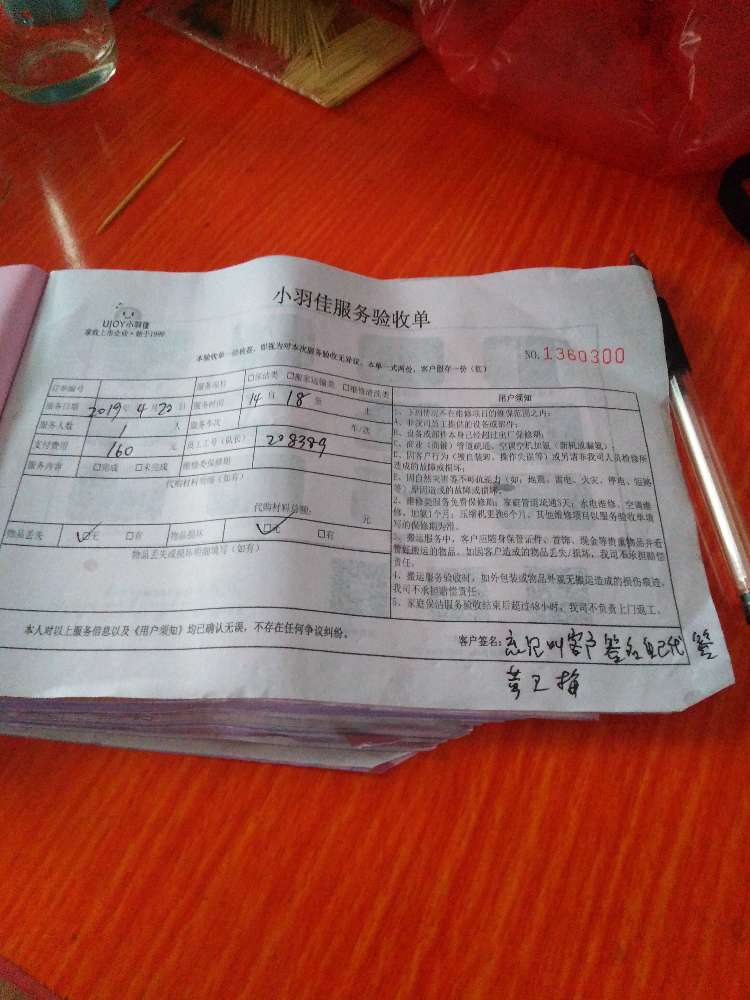 小羽佳服务验收单
UJOY小羽佳
家政上市企业·始于1999
本验收单一经收签,即视为对本次服务验收无异议。本单一式两份,客户留存一份(红)
NO. 1360300
订单编号 服务项目 □保洁类 □搬家运输类 □维修清洗类
服务日期 2019年 4月 20日 服务时间 14时 18至
服务人数 1 人 服务车次 车/次
支付费用 160 元 员工工号(队长) 208389
服务内容 □完成 □未完成 维修类保修期
代购材料明细(如有)
代购材料总额: 元
物品丢失 ☑无 □有 物品损坏 ☑无 □有
物品丢失或损坏明细填写(如有)
用户须知
1、下列情况不在维修项目的维保范围之内:
A、非我司员工提供的设备或部件;
B、设备或部件本身已经超过出厂保修期;
E、因自然灾害等不可抗能力(如:地震、雷电、火灾、停电、短路
等)原因造成的故障或损坏。
2、维修类服务免费保修期:家庭管道疏通3天;水电维修、空调维
修、加氟1个月;压缩机更换6个月。其他维修项目以服务验收单填
写的保修期为准。
3、搬运服务中,客户应随身保管证件、首饰、现金等贵重物品并看
管好搬运的物品。如因客户造成的物品丢失/损坏,我司不承担赔偿
责任。
4、搬运服务验收时,如外包装或物品外观无搬运造成的损伤痕迹,
我司不承担赔偿责任。
5、家庭保洁服务验收结束后超过48小时,我司不负责上门返工。
本人对以上服务信息以及《用户须知》均已确认无误,不存在任何争议纠纷。
客户签名:忘记叫客户签名自己代签